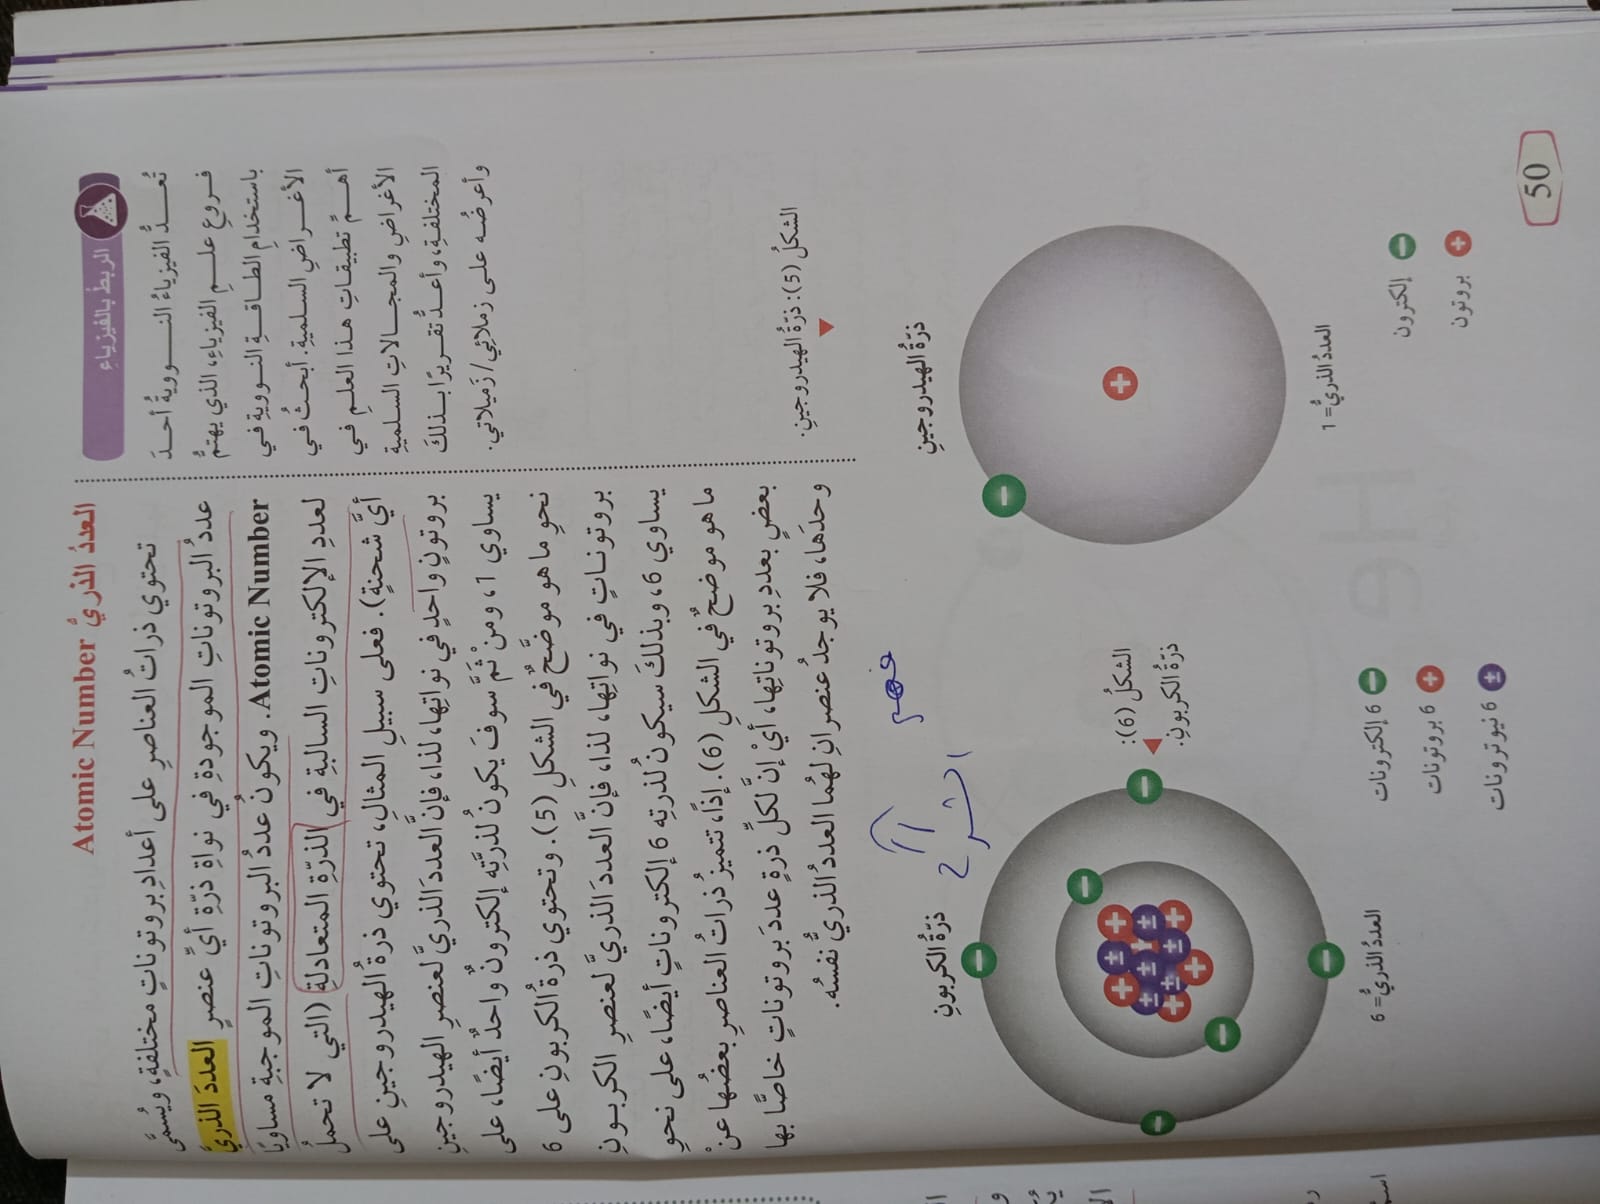 العددُ الذريُّ Atomic Number
تحتوي ذراتُ العناصرِ على أعدادِ بروتوناتٍ مختلفةٍ، ويُسمّى
عددُ البروتوناتِ الموجودةِ في نواةِ ذرّةِ أيِّ عنصرٍ العددَ الذريَّ
Atomic Number. ويكونُ عددُ البروتوناتِ الموجبةِ مساويًا
لعددِ الإلكتروناتِ السالبةِ في الذرّةِ المتعادلةِ (التي لا تحملُ
أيَّ شحنةٍ). فعلى سبيلِ المثالِ، تحتوي ذرةُ الهيدروجينِ على
بروتونٍ واحدٍ في نواتِها، لذا، فإنَّ العددَ الذريَّ لعنصرِ الهيدروجينِ
يساوي 1، ومنْ ثَمَّ سوفَ يكونُ لذرَّتِه إلكترونٌ واحدٌ أيضًا، على
نحوِ ما هو موضَّحٌ في الشكلِ (5). وتحتوي ذرةُ الكربونِ على 6
بروتوناتٍ في نواتِها، لذا، فإنَّ العددَ الذريَّ لعنصرِ الكربونِ
يساوي 6، وبذلكَ سيكونُ لذرتِه 6 إلكتروناتٍ أيضًا، على نحوِ
ما هو موضحٌ في الشكلِ (6). إذًا، تتميزُ ذراتُ العناصرِ بعضُها عنْ
بعضٍ بعددِ بروتوناتِها، أيْ إنَّ لكلِّ ذرةٍ عددَ بروتوناتٍ خاصًّا بها
وحدَها، فلا يوجدُ عنصرانِ لهُما العددُ الذريُّ نفسُه.
الربطُ بالفيزياءِ
تُعدُّ الفيزياءُ النوويةُ أحدَ
فروعِ علمِ الفيزياءِ، الذي يهتمُّ
باستخدامِ الطاقةِ النوويةِ في
الأغراضِ السلميةِ. أبحثُ في
أهمِّ تطبيقاتِ هذا العلمِ في
الأغراضِ والمجالاتِ السلميةِ
المختلفةِ، وأعدُّ تقريرًا بذلكَ
وأعرضُه على زملائي/ زميلاتي.
الشكلُ (5): ذرّةُ الهيدروجينِ.
ذرّةُ الهيدروجينِ
العددُ الذريُّ= 1
إلكترون
بروتون
ذرّةُ الكربونِ
الشكلُ (6):
ذرّةُ الكربونِ.
العددُ الذريُّ= 6
6 إلكترونات
6 بروتونات
6 نيوترونات
50